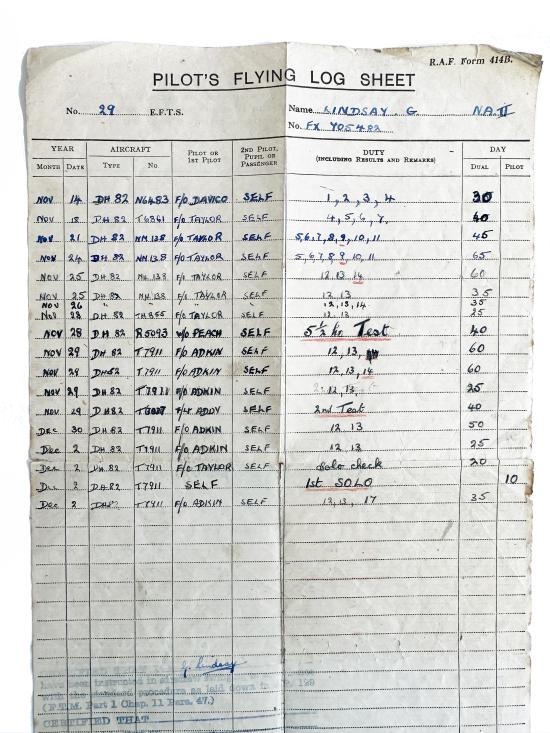 R.A.F. Form 414B.
PILOT'S FLYING LOG SHEET
No. 29 E.F.T.S. Name LINDSAY. G. NA.II
No. FX 705482
YEAR AIRCRAFT PILOT OR 1ST PILOT 2ND PILOT, PUPIL OR PASSENGER DUTY (INCLUDING RESULTS AND REMARKS) DAY
MONTH DATE TYPE No. DUAL PILOT
NOV 14 DH 82 N6483 F/O DAVICO SELF 1, 2, 3, 4 30
NOV 18 DH 82 T6361 F/O TAYLOR SELF 4, 5, 6, 7. 40
NOV 21 DH 82 NM 138 F/O TAYLOR SELF 5,6,7,8,9,10,11 45
NOV 24 DH 82 NM 138 F/O TAYLOR SELF 5,6,7,8,9,10,11 65
NOV 25 DH 82 NM 138 F/O TAYLOR SELF 12 13 14 60
NOV 25 DH 82 NM 138 F/O TAYLOR SELF 12, 13 35
NOV 26 12, 13, 14 35
NOV 28 DH 82 F/O TAYLOR SELF 12, 13 25
NOV 28 DH 82 R5093 W/O PEACH SELF 5 1/2 hr. Test 40
NOV 29 DH. 82 T7911 F/O ADKIN SELF 12, 13, 60
NOV 29 DH82 T7911 F/O ADKIN SELF 12, 13, 14 60
NOV 29 DH 82 T7911 F/O ADKIN SELF 12, 13, 25
NOV. 29 DH82 F/Lt ADDY SELF 2nd Test 40
DEC 30 DH. 82 T7911 F/O ADKIN SELF 12 13 50
DEC 2 DH. 82 T7911 F/O ADKIN SELF 12 13 25
DEC 2 DH. 82 T7911 F/O TAYLOR SELF Solo check 20
DEC 2 DH. 82 T7911 SELF 1st SOLO 10
DEC 2 DH82 T7911 F/O ADKIN SELF 12, 13, 17 35
G. Lindsay
have been instructed in
with the standard procedure as laid down in 129
(F.T.M. Part 1 Chap. 11 Para. 47.)
CERTIFIED THAT